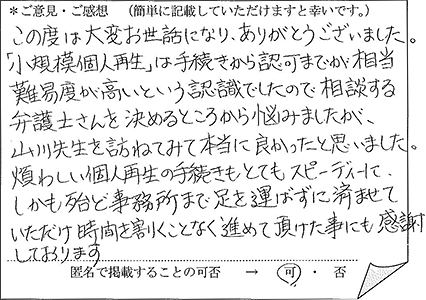 *ご意見・ご感想 (簡単に記載していただけますと幸いです。)
この度は大変お世話になり、ありがとうございました。
「小規模個人再生」は手続きから認可までが相当
難易度が高いという認識でしたので相談する
弁護士さんを決めるところから悩みましたが、
山川先生を訪ねてみて本当に良かったと思いました。
煩わしい個人再生の手続きもとてもスピーディーに、
しかも殆ど事務所まで足を運ばずに済ませて
いただけ時間を割くことなく進めて頂けた事にも感謝
しております
匿名で掲載することの可否 → 可 ・ 否